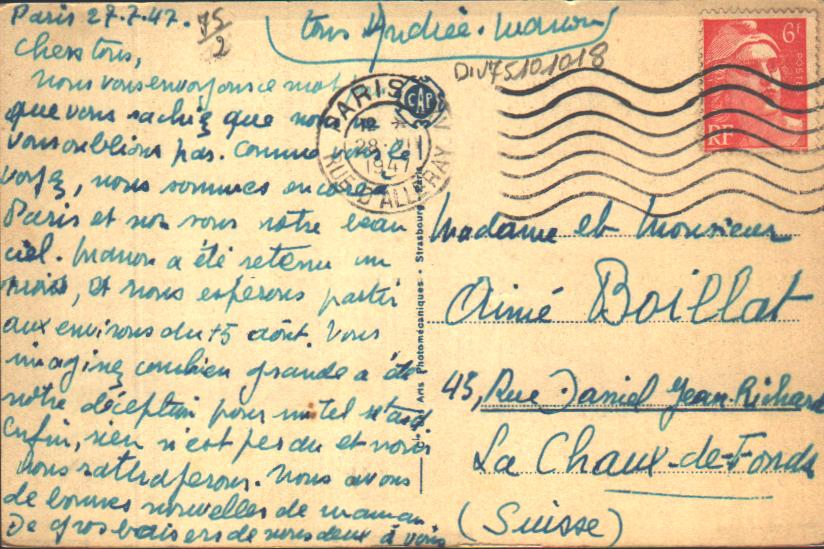 Paris 27.7.47.
75/2
tous Andrée - Manon
Chers tous,
nous vous envoyons ce mot
que vous sachiez que nous
vous oublions pas. Comme vous le
voyez, nous sommes encore à
Paris et non sous votre beau
ciel. Manon a été retenu un
mois, et nous espérons partir
aux environs du 15 août. Vous
imaginez combien grande a été
notre déception pour un tel retard
Enfin, rien n'est perdu et nous
nous rattraperons. Nous avons
de bonnes nouvelles de maman
De gros baisers de nous deux à vous
DIV75101018
PARIS
CAP
12 *
28 · VII
1947
RUE D'ALLERAY
6F
RF
Arts Photomécaniques · Strasbourg Paris
Madame et Monsieur
Aimé Boillat
45, Rue Daniel Jean-Richard
La Chaux-de-Fonds
(Suisse)